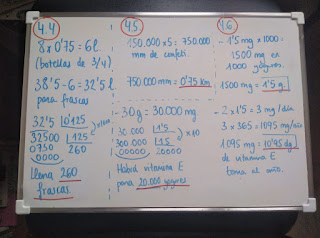 4.4
8 x 0'75 = 6l
(botellas de 3/4)
38'5 - 6 = 32'5 l
para frascas
32'5 | 0'125
32500 | 125
0750 260
0000
x 1000
llena 260
frascas
4.5
150.000 x 5 = 750.000
mm de confeti.
750.000 mm = 0'75 Km
- 30g = 30.000 mg
30.000 | 1'5
300.000 | 15
00000 20000
x 10
Habrá vitamina E
para 20.000 yogures
4.6
- 1'5 mg x 1000 =
1500 mg en
1000 yogures.
1500 mg = 1'5 g.
- 2 x 1'5 = 3 mg/día
3 x 365 = 1095 mg/año
1095 mg = 1'095 dg
de vitamina E
toma al año.